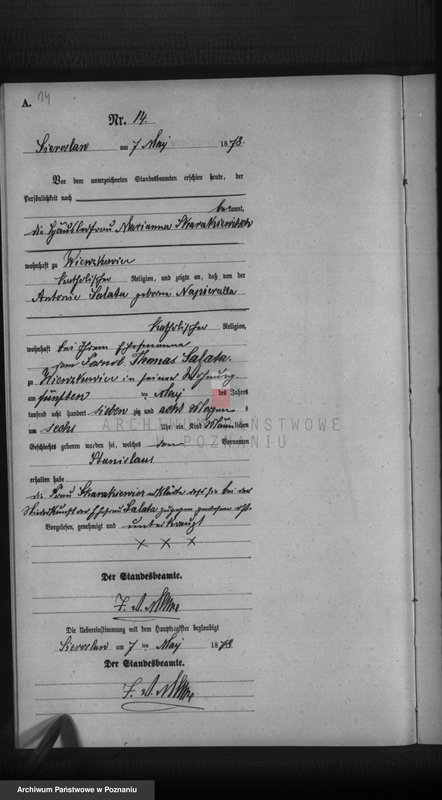 A. 14
Nr. 14.
Sieroslaw am 7 May 1878.
Vor dem unterzeichneten Standesbeamten erschien heute, der
Persönlichkeit nach
bekannt,
die Häuslerfrau Marianna Skarakiewicz
wohnhaft zu Wierzkowice
katholischer Religion, und zeigte an, daß von der
Antonie Salata geborene Napieralla
katholischer Religion,
wohnhaft bei ihrem Ehemanne
dem Thomas Salata
zu in seiner Wohnung
am fünften ten May des Jahres
tausend acht hundert sieben zig und acht Morgens
um sechs Uhr ein Kind männlichen
Geschlechts geboren worden sei, welches den Vornamen
Stanislaus
erhalten habe
die Frau Skarakiewicz erklärte daß sie bei der
Niederkunft der Ehefrau Salata zugegen gewesen ist.
Vorgelesen, genehmigt und unterkreuzt
x x x
Der Standesbeamte.
Die Uebereinstimmung mit dem Hauptregister beglaubigt
Sieroslaw am 7 ten May 1878
Der Standesbeamte.
ARCHIWUM PAŃSTWOWE
POZNANIU
Archiwum Państwowe w Poznaniu